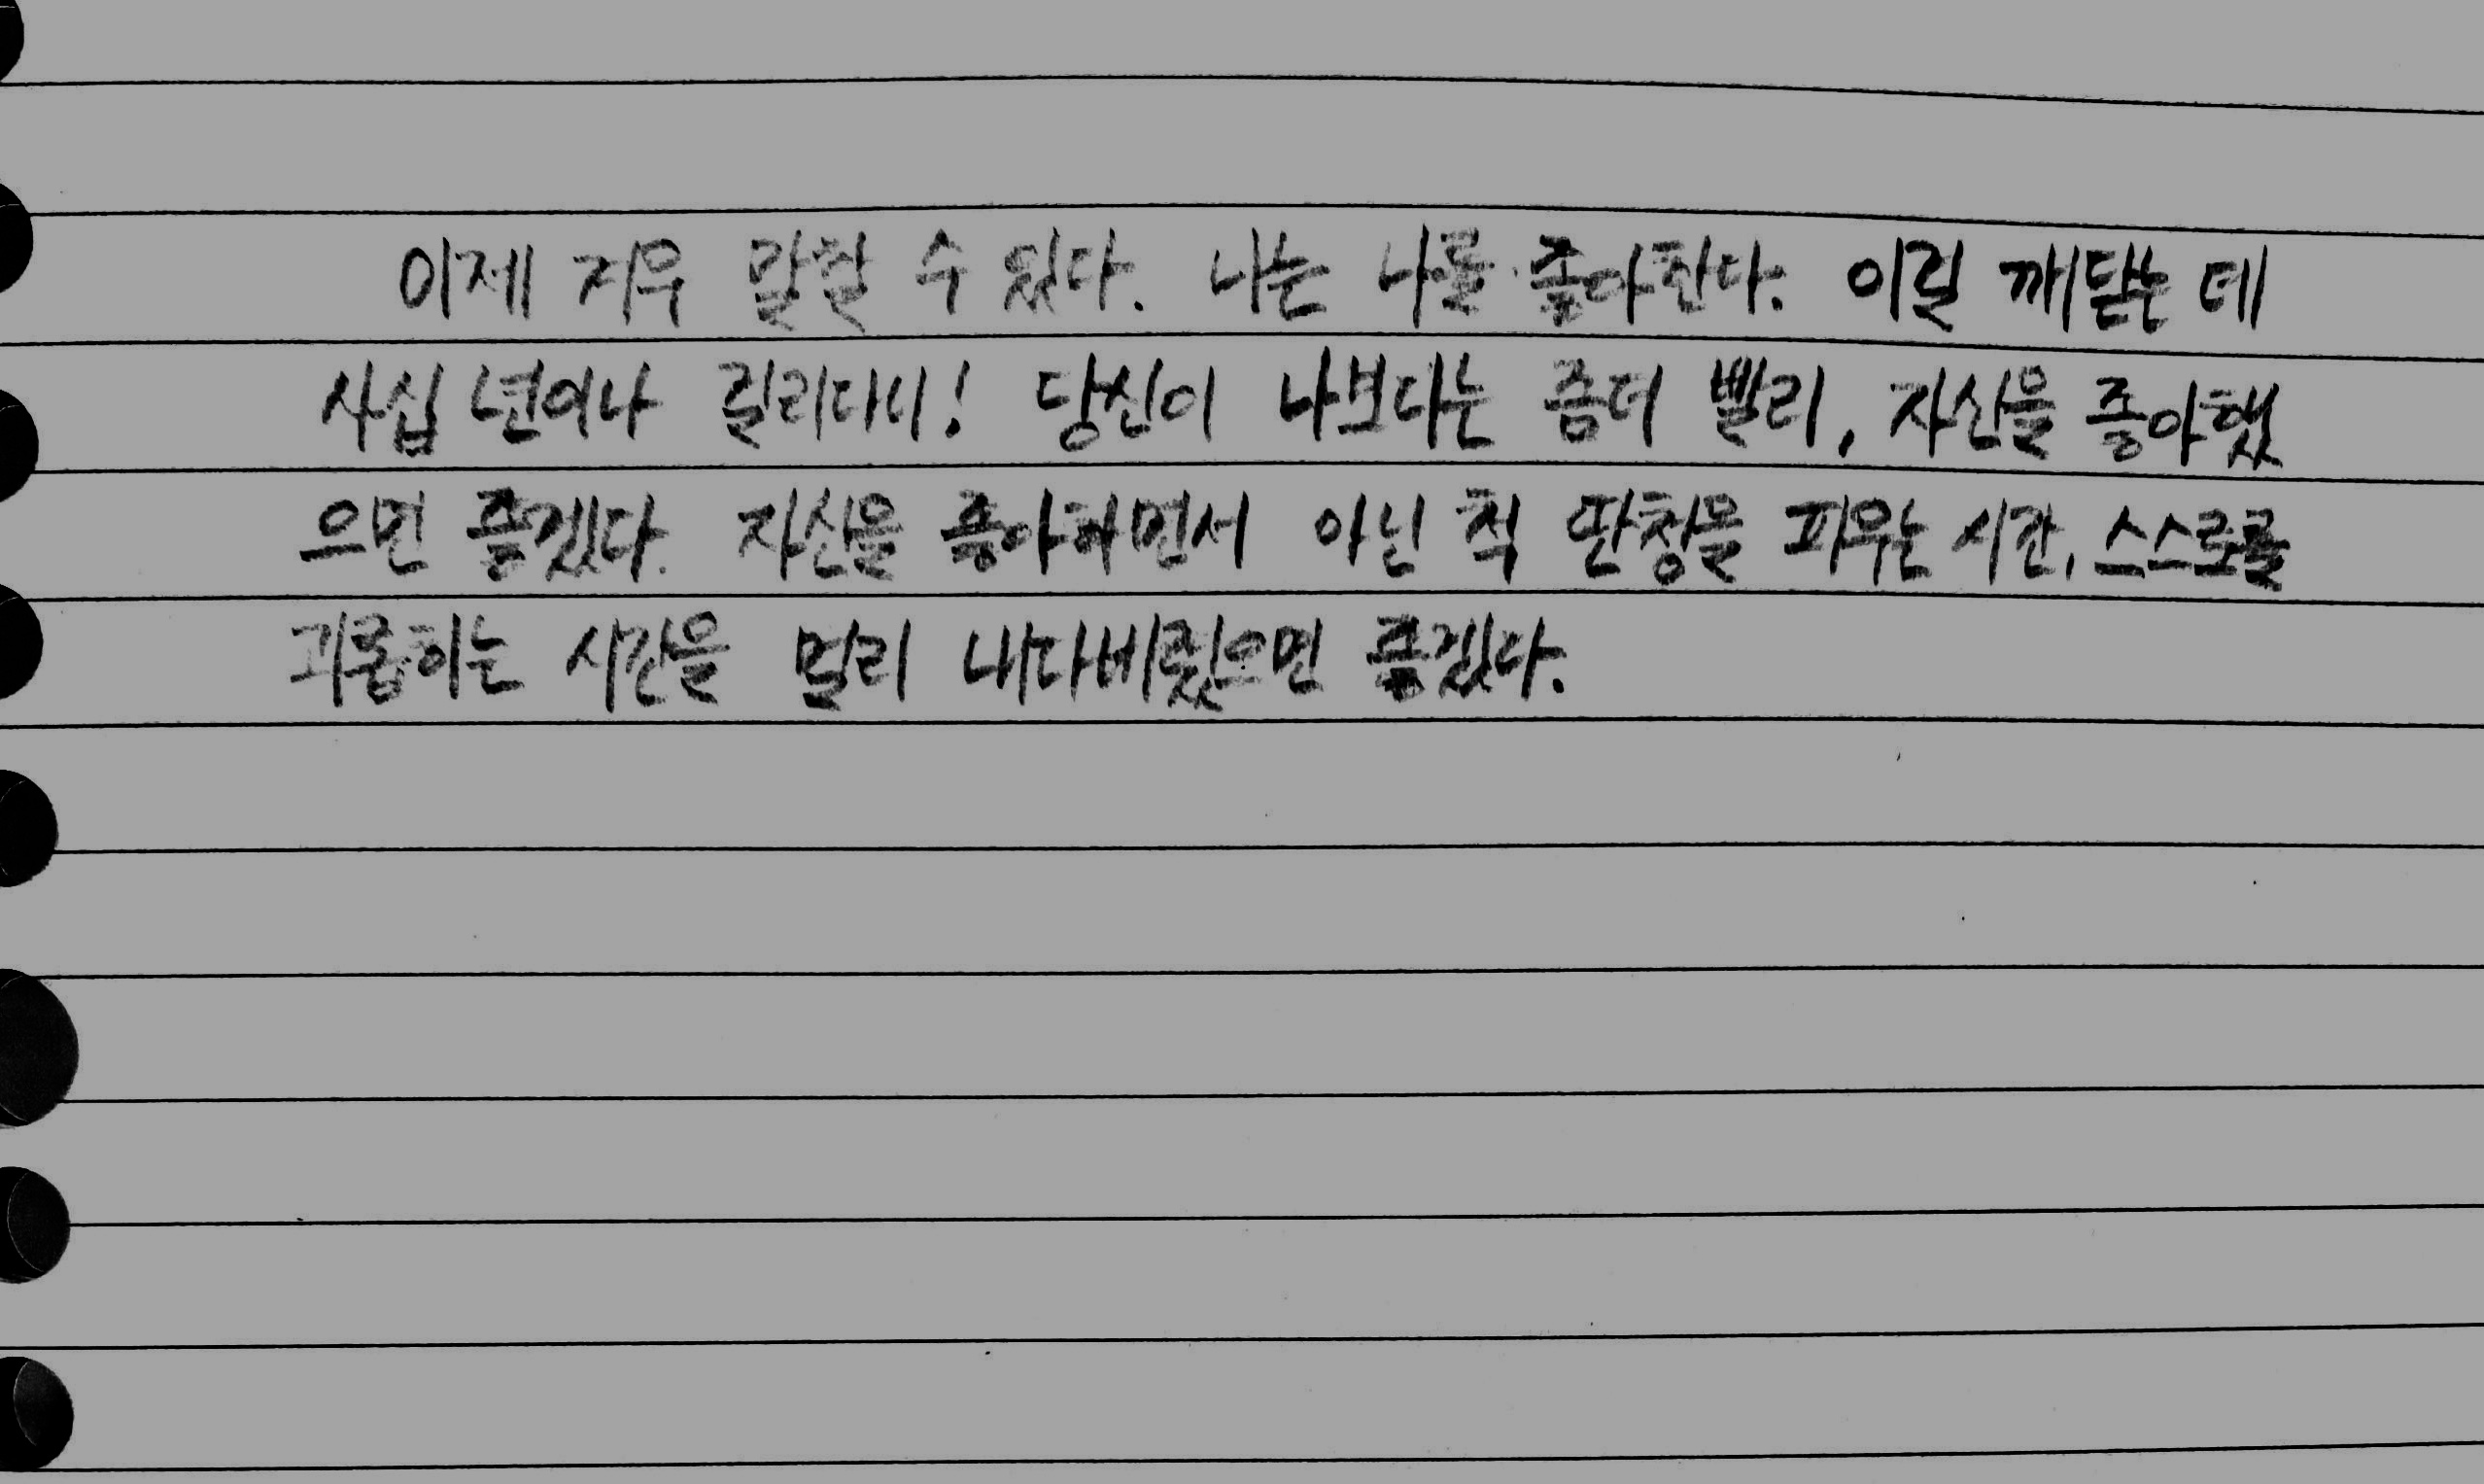 이제 겨우 말할 수 있다. 나는 나를 좋아한다. 이걸 깨닫는 데
사십 년이나 걸리다니! 당신이 나보다는 좀더 빨리, 자신을 좋아했
으면 좋겠다. 자신을 좋아하면서 아닌 척 딴청을 피우는 시간, 스스로를
괴롭히는 시간을 멀리 내다버렸으면 좋겠다.